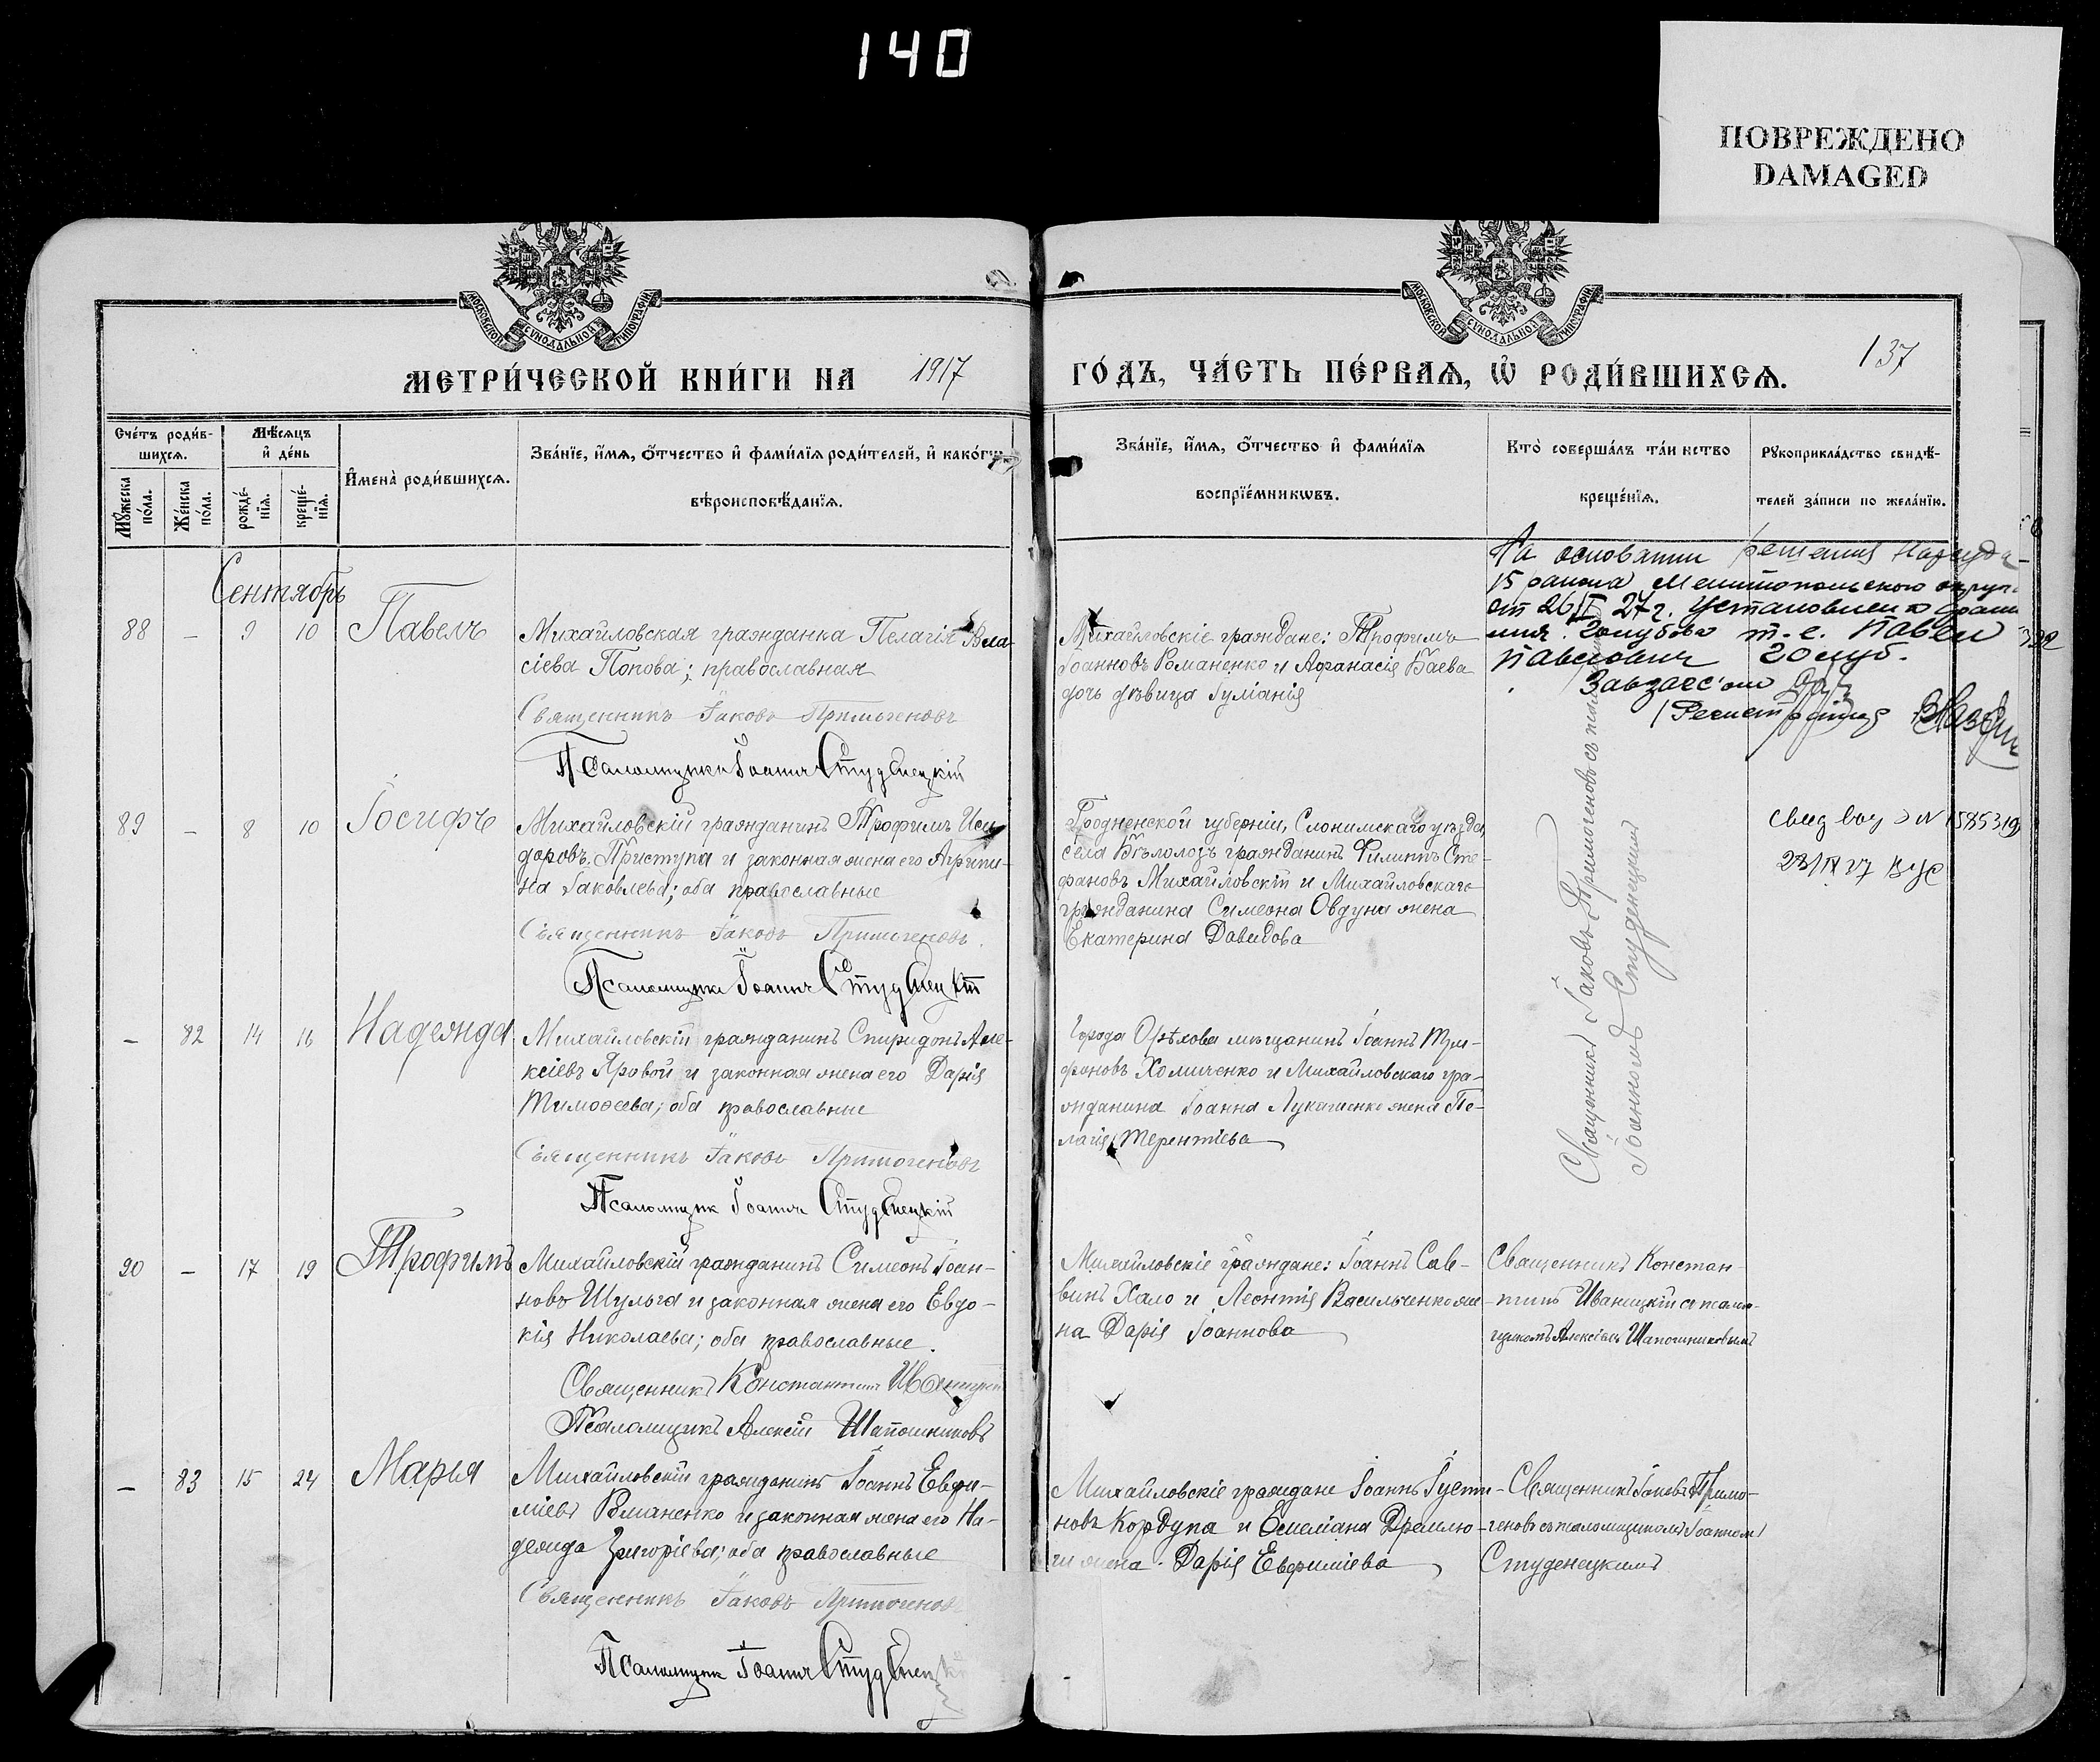 140
ПОВРЕЖДЕНО
DAMAGED
МОСКОВСКОЙ СУНОДАЛЬНОЙ ТИПОГРАФІИ
МОСКОВСКОЙ СУНОДАЛЬНОЙ ТИПОГРАФІИ
МЕТРИ́ЧЕСКОЙ КНИ́ГИ НА 1917 ГО́ДЪ, ЧА́СТЬ ПЕ́РВАѦ, Ѡ҆ РОДИ́ВШИХСѦ.
137
Сче́тъ роди́в-
шихсѧ.
Мꙋ́жеска по́ла.
Же́нска по́ла.
Мѣ́сѧцъ
и҆ де́нь
рожде́-
нїѧ.
креще́-
нїѧ.
И҆мена̀ роди́вшихсѧ.
Зва́нїе, и҆́мѧ, ѻ҆́тчество и҆ фами́лїѧ роди́телей, и҆ како́гѡ
вѣроисповѣ́данїѧ.
Зва́нїе, и҆́мѧ, ѻ҆́тчество и҆ фами́лїѧ
воспрїе́мникѡвъ.
Кто̀ соверша́лъ та́инство
креще́нїѧ.
Рꙋкоприкла́дство свидѣ́-
телей за́писи по жела́нїю.
Сентябрь
88 – 9 10 Павелъ
Михайловская гражданка Пелагія Вла-
сіева Попова; православная
Священникъ Іаковъ Примогеновъ
Псаломщикъ Іоаннъ Студенецкій
Михайловскіе граждане: Трофимъ
Іоанновъ Романенко и Афанасія Баева
дочь дѣвица Іуліанія
На основании решения Нарсуда
15 района Мелитопольского округ
от 26/II 27г. установлен
Голубова т.е. Павел
Павлович Голуб.
Завзагс'ом
Регистратор
332
89 – 8 10 Іосифъ
Михайловскій гражданинъ Трофимъ Иси-
доровъ Приступа и законная жена его Агрипи-
на Іаковлева; оба православные
Священникъ Іаковъ Примогеновъ.
Псаломщикъ Іоаннъ Студенецкій
Гродненской губерніи, Слонимскаго уѣзда,
села Бѣлолозъ гражданинъ Филиппъ Сте-
фановъ Михайловскій и Михайловскаго
гражданина Симеона Овдуна жена
Екатерина Давидова
Священникъ Іаковъ Примогеновъ съ псаломщикомъ
Іоанномъ Студенецкимъ
1585319
23/IX 27 ВУС
– 82 14 16 Надежда
Михайловскій гражданинъ Спиридонъ Але-
ксіевъ Яровой и законная жена его Дарія
Тимофеева; оба православные
Священникъ Іаковъ Примогеновъ
Псаломщикъ Іоаннъ Студенецкій
Города Орѣхова мѣщанинъ Іоаннъ Три-
фоновъ Хомиченко и Михайловскаго гра-
жданина Іоанна Лукашенко жена Пе-
лагія Терентіева
90 – 17 19 Трофимъ
Михайловскій гражданинъ Симеонъ Іоан-
новъ Шульга и законная жена его Евдо-
кія Николаева; оба православные.
Священникъ Константинъ Иваницкій
Псаломщикъ Алексій Шапошниковъ
Михайловскіе граждане: Іоаннъ Сав-
винъ Хало и Леонтія Васильченко же-
на Дарія Іоаннова
Священникъ Констан-
тинъ Иваницкій съ псалом-
щикомъ Алексіемъ Шапошниковымъ
– 83 15 24 Марія
Михайловскій гражданинъ Іоаннъ Евфи-
міевъ Романенко и законная жена его На-
дежда Григоріева; оба православные
Священникъ Іаковъ Примогеновъ
Псаломщикъ Іоаннъ Студенецкій
Михайловскіе граждане Іоаннъ Іусти-
новъ Кордупа и Емеліана Дремлю-
ги жена Дарія Евфиміева
Священникъ Іаковъ Примо-
геновъ съ псаломщикомъ Іоанномъ
Студенецкимъ